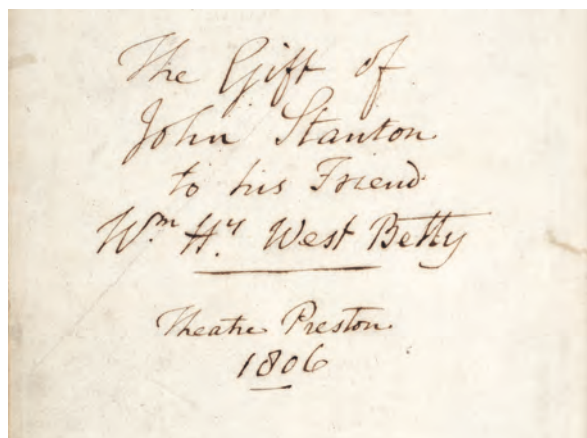 The Gift of
John Stanton
to his Friend
Wm. Hy. West Betty
Theatre Preston
1806